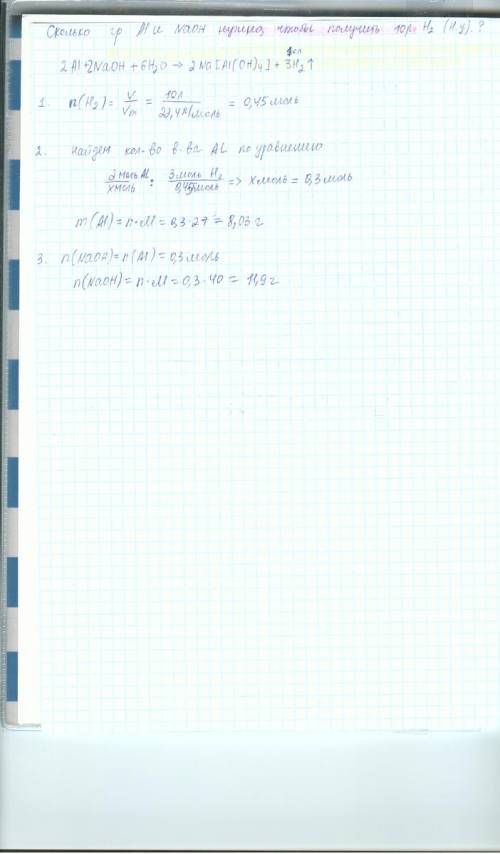 Сколько гр Al и NaOH нужно, чтобы получить 10л H₂ (н.у.)?
10л
2Al+2NaOH + 6H₂O → 2Na[Al(OH)₄] + 3H₂↑
1. n(H₂) = V/Vm = 10л/22,4л/моль = 0,45 моль
2. Найдем кол-во в-ва Al по уравнению
2 моль Al/x моль : 3 моль H₂/0,45 моль => x моль = 0,3 моль
m(Al) = n·M = 0,3·27 = 8,03 г
3. n(NaOH) = n(Al) = 0,3 моль
n(NaOH) = n·M = 0,3·40 = 11,9 г